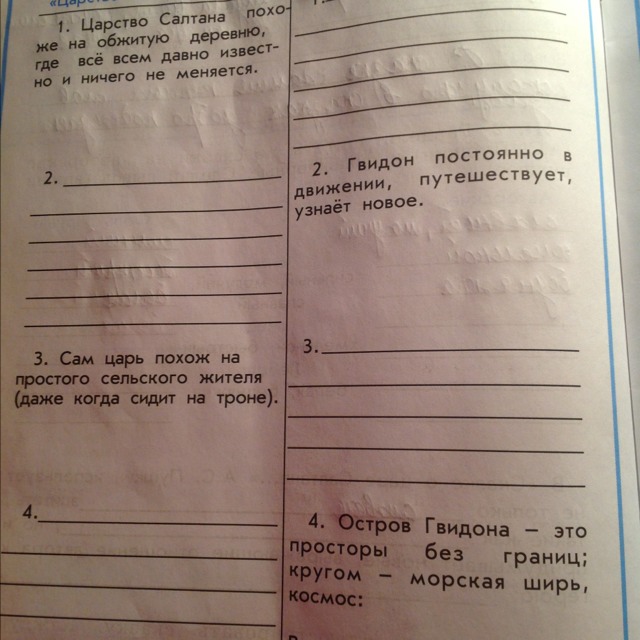 «Царство
1. Царство Салтана похо-
же на обжитую деревню,
где всё всем давно извест-
но и ничего не меняется.
2.
3. Сам царь похож на
простого сельского жителя
(даже когда сидит на троне).
4.
1.
2. Гвидон постоянно в
движении, путешествует,
узнаёт новое.
3.
4. Остров Гвидона – это
просторы без границ;
кругом – морская ширь,
космос: